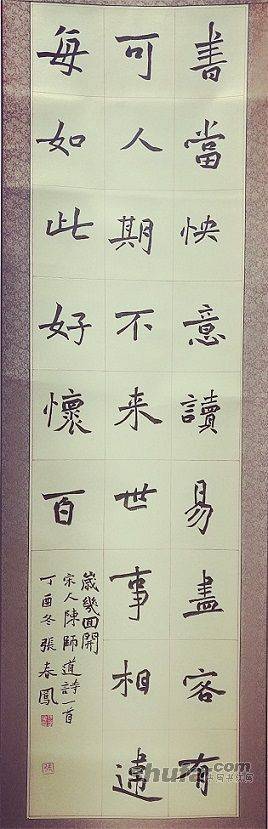 書當快意讀易盡客有
可人期不来世事相違
每如此好懷百
歲幾回開
宋人陳師道詩一首
丁酉冬張春鳳